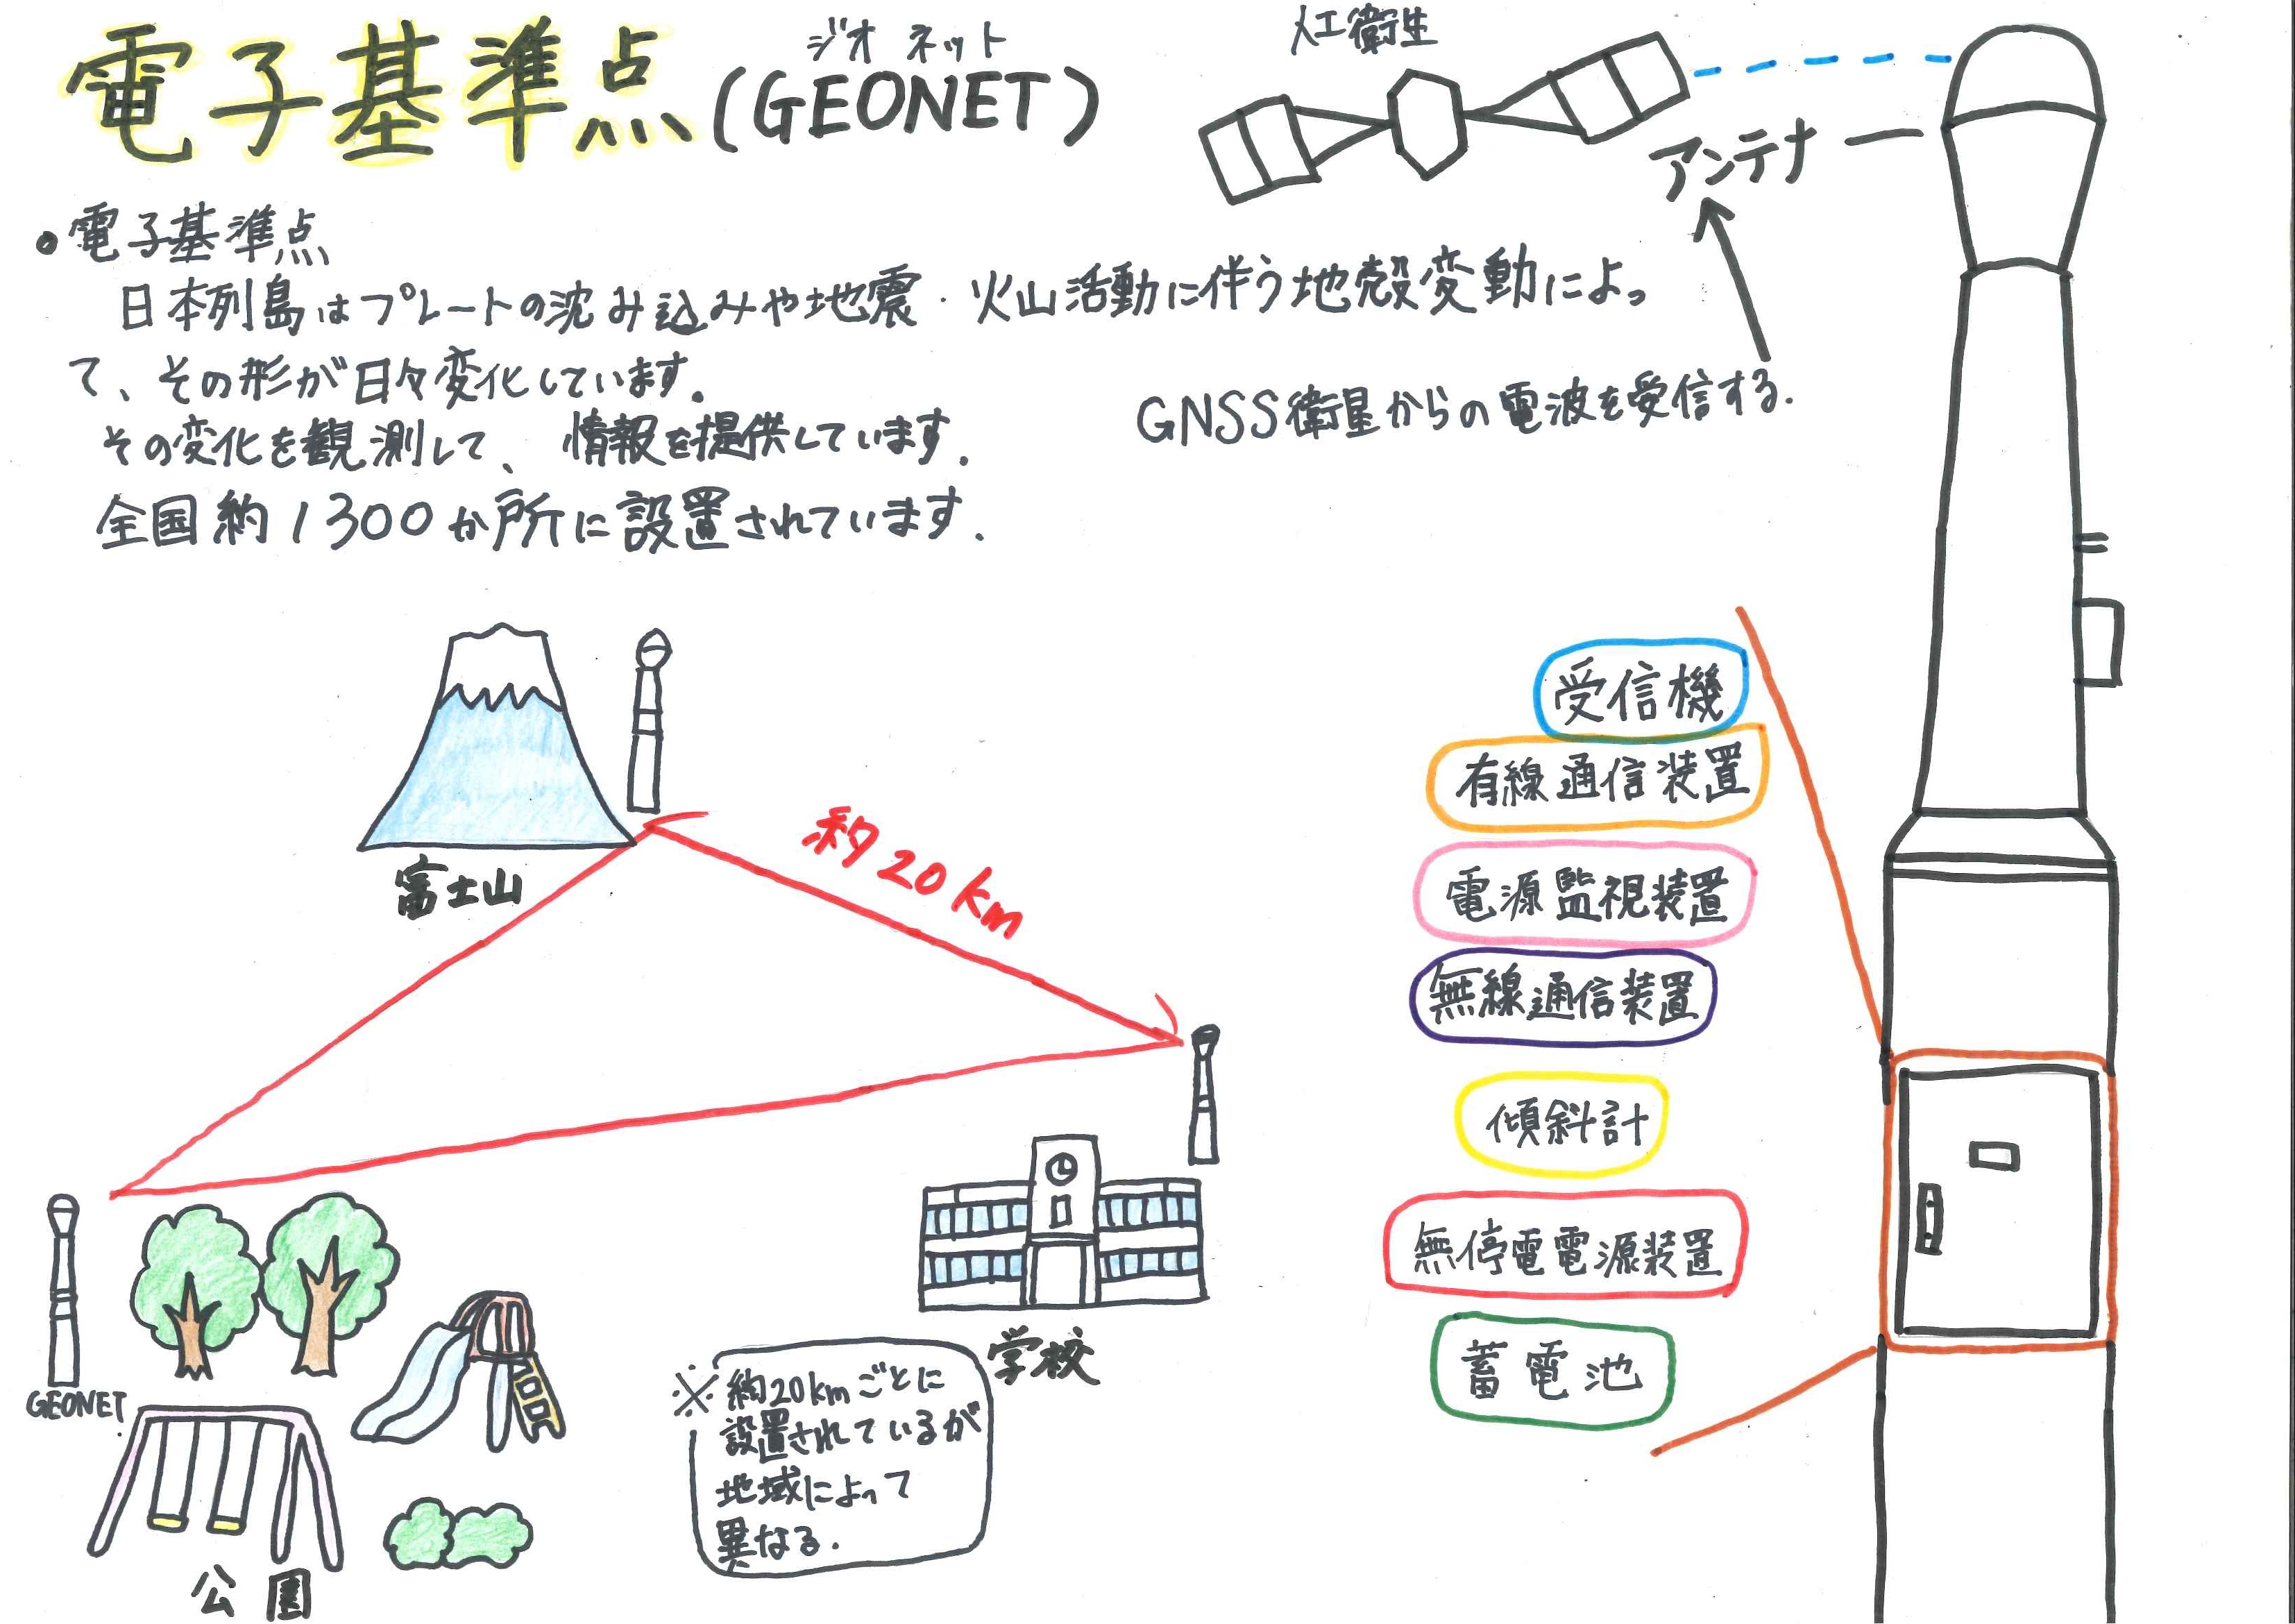 電子基準点(GEONET)
ジオネット
人工衛生
アンテナ
・電子基準点
日本列島はプレートの沈み込みや地震・火山活動に伴う地殻変動によっ
て、その形が日々変化しています。
その変化を観測して、情報を提供しています。
全国約1300か所に設置されています。
GNSS衛星からの電波を受信する。
受信機
有線通信装置
電源監視装置
無線通信装置
傾斜計
無停電電源装置
蓄電池
富士山
約20km
学校
GEONET
公園
※約20kmごとに
設置されているが
地域によって
異なる。